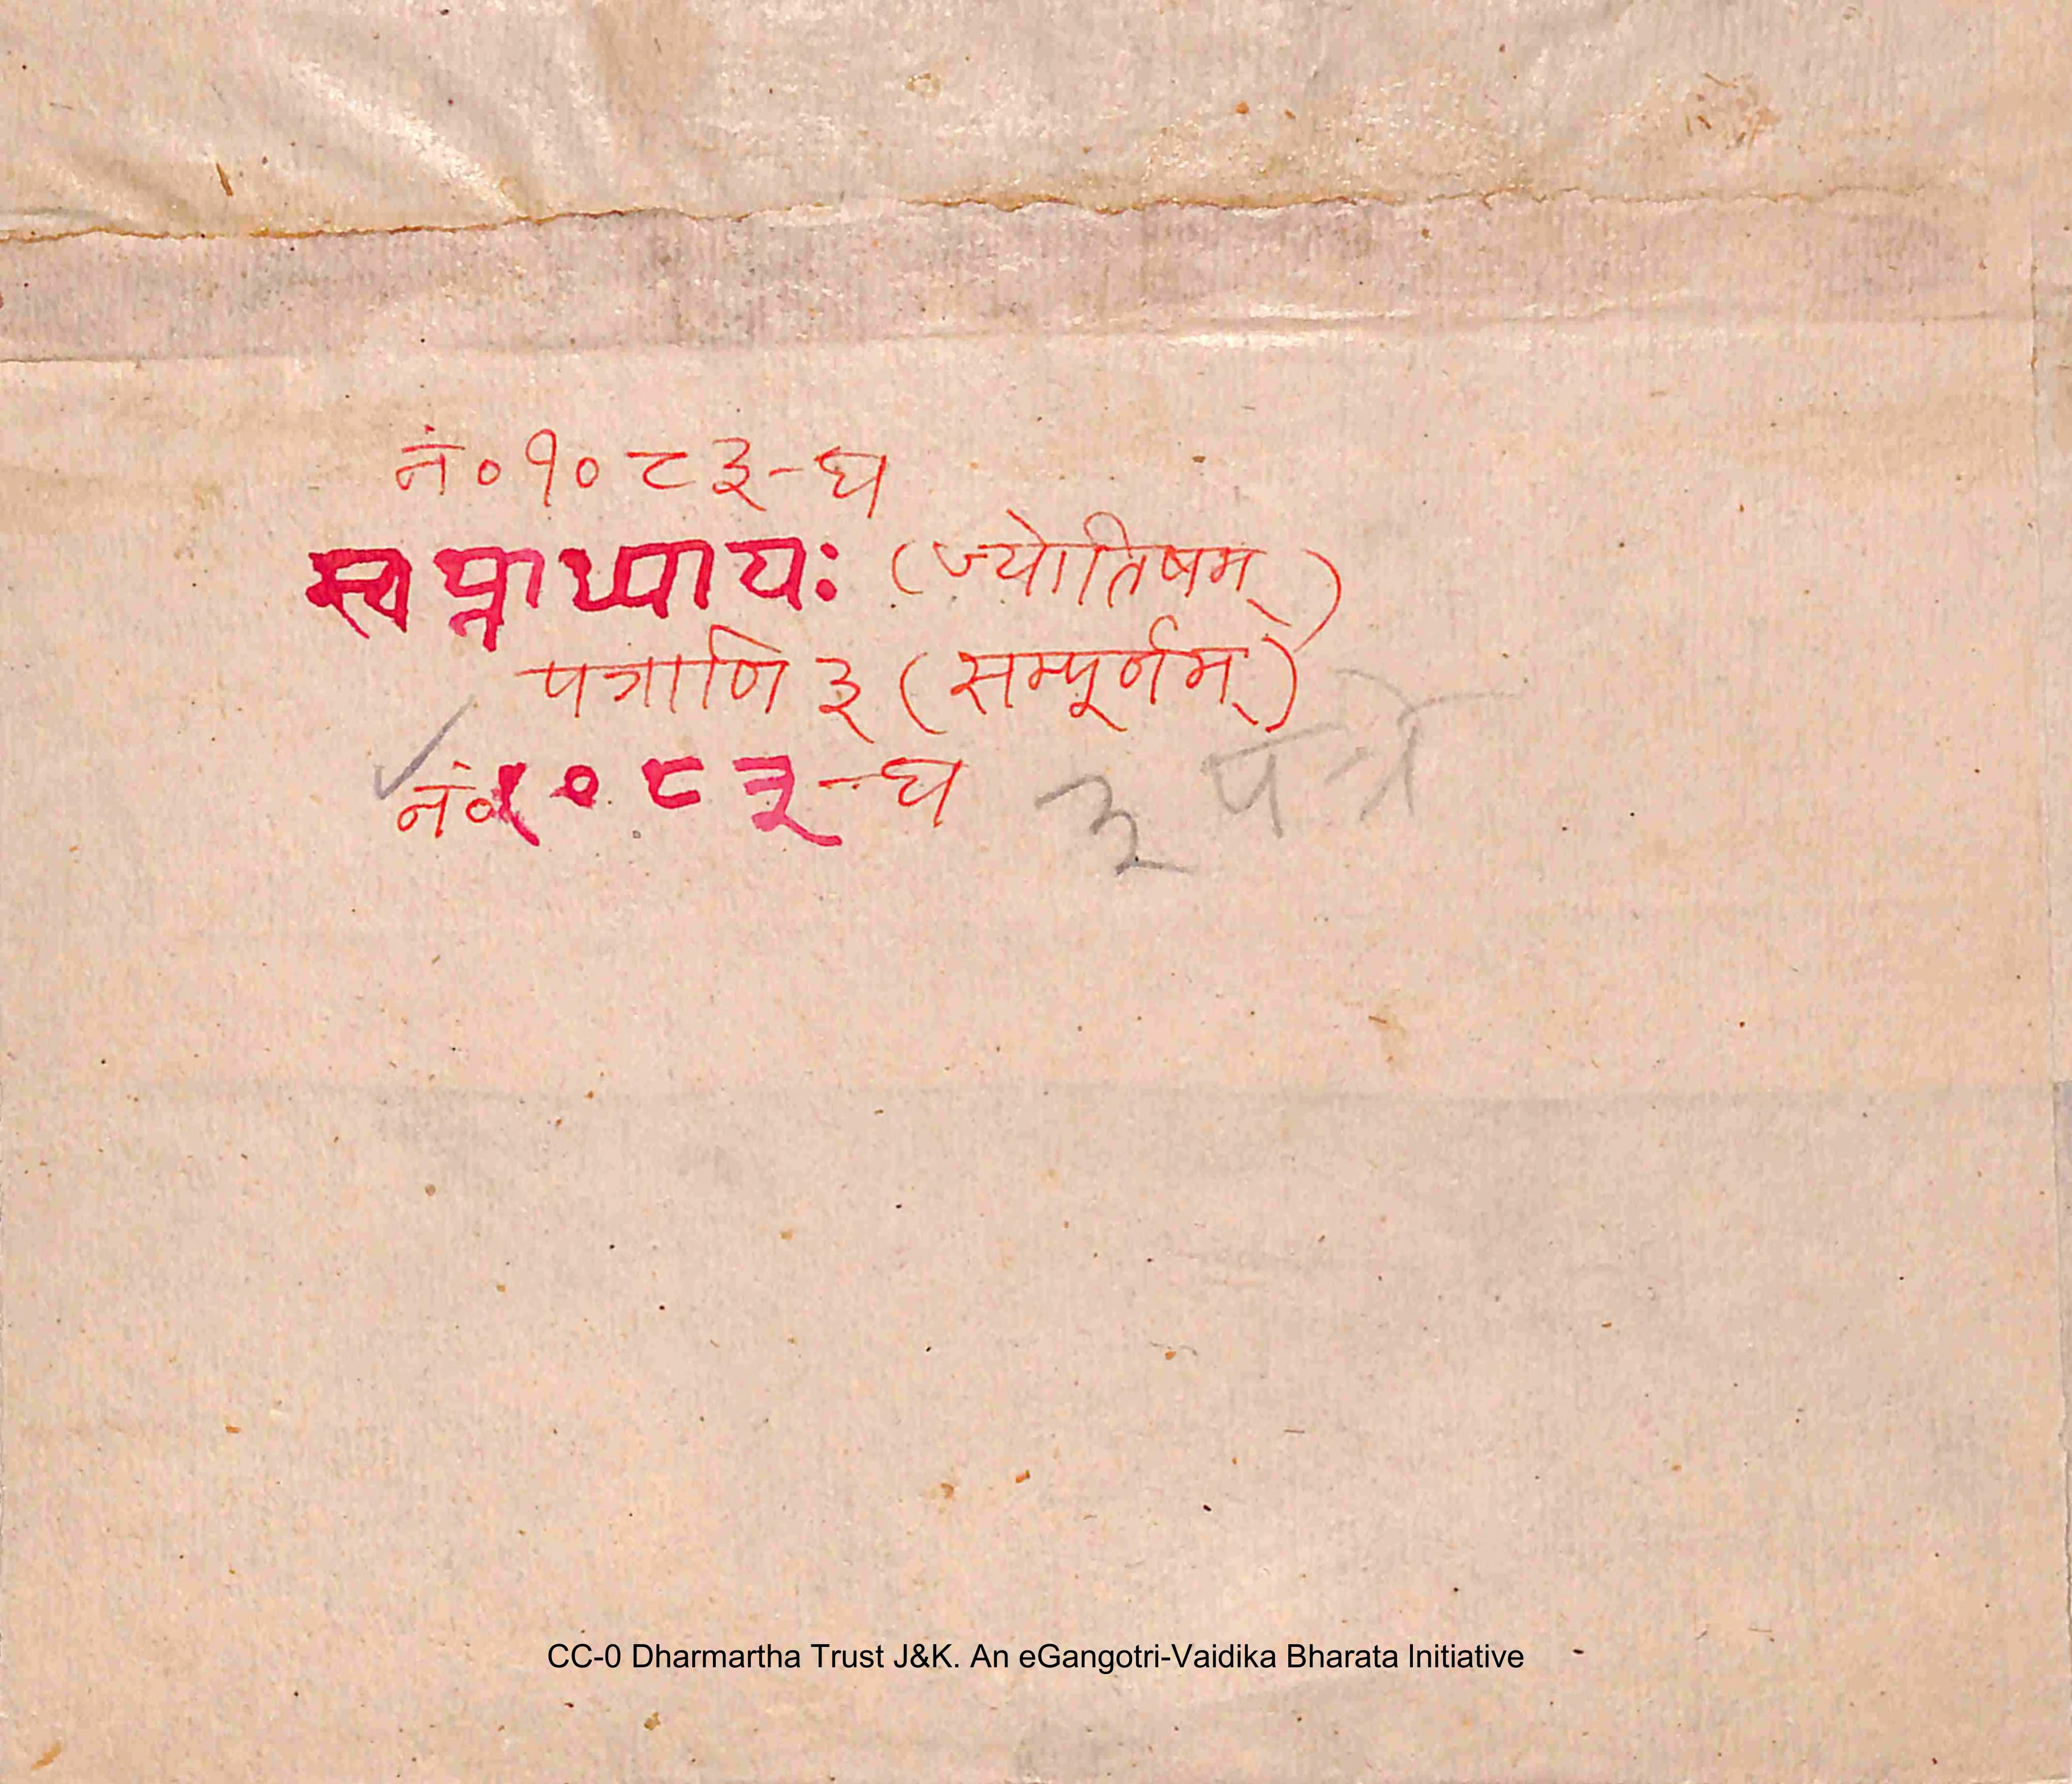 नं० १०८३-घ
स्वप्नाध्यायः (ज्योतिषम्)
पत्राणि ३ (सम्पूर्नम्)
नं० १०८३-घ ३ पत्रे
CC-0 Dharmartha Trust J&K. An eGangotri-Vaidika Bharata Initiative